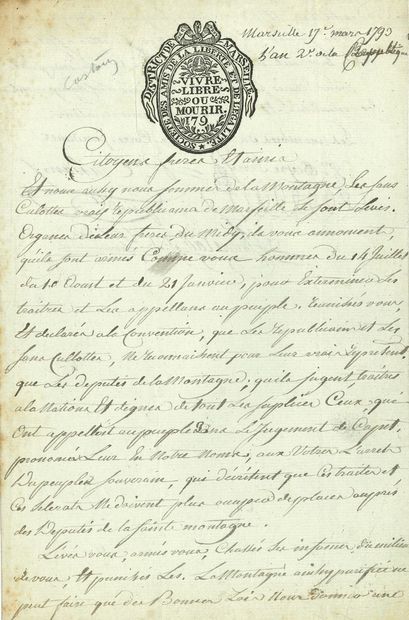 Marseille 17e mars 1793
L'an 2e de la Republiq.
DISTRICT DE MARSEILLE
SOCIÉTÉ DES AMIS DE LA LIBERTÉ ET DE L'ÉGALITÉ
VIVRE
LIBRE
OU
MOURIR.
179
Citoyens freres Et amis
Et nous aussy nous sommes de la Montagne Les sans
Culottes vrais Republicains de Marseille Le sont
Organes de Leur freres du Midy, ils vous annoncent
quils sont armés Comme vous hommes du 14 Juillet
du 10 Aoust et du 21 Janvier, pour Exterminer Les
traitres et Les appellans au peuple, Reunisses vous,
Et declarés a la Convention, que Les Republicains et Les
Sans Cullottes, Ne Reconnaissent pour Leur vrais
que Les deputés de la Montagne, quils jugent traitres
a la Nations Et dignes de tout Les supplices Ceux, qui
Ont appellés au peuple dans Le Jugement de Capet,
prononcés Leur En Notre Noms, aux Votres Larret
Du peuple Souverain, qui décrétent que Ces traites et
Ces Ne doivent plus de places auprés
des Deputés de la sainte montagne.
Levés vous, armés vous, Chassés Ces infames du milieu
de vous, Et punissés Les. La Montagne ainsy purifiée ne
peut faire que des Bonnes Lois Nous donner une